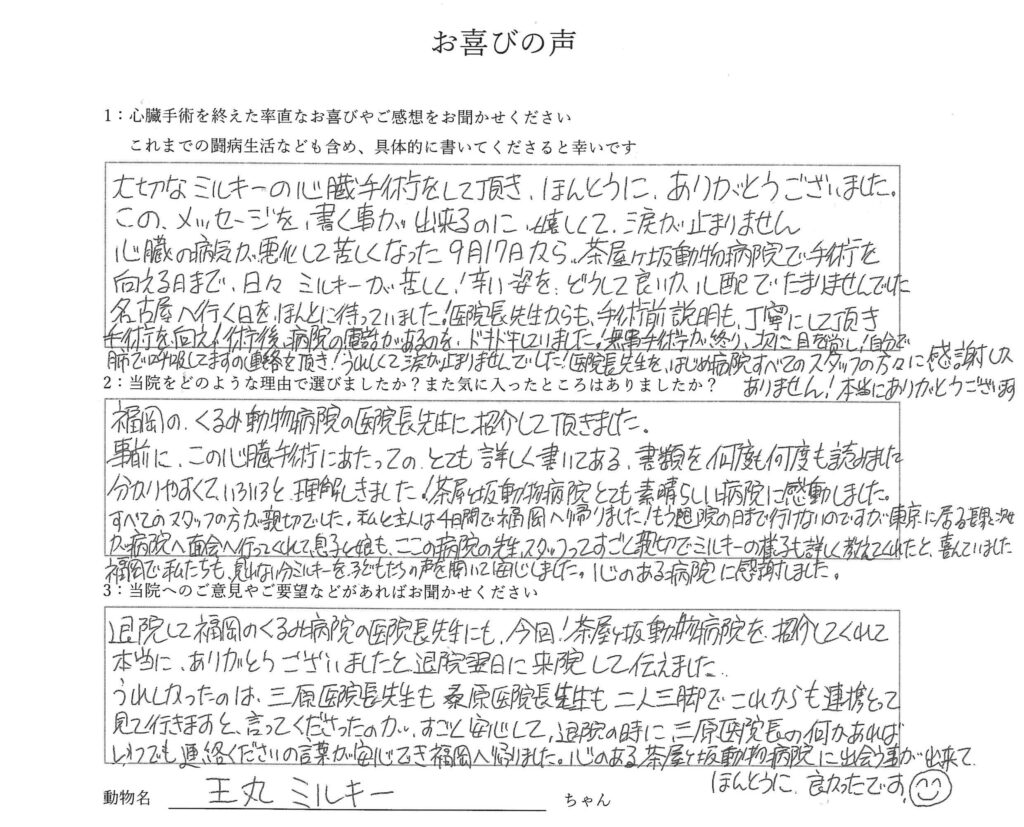 お喜びの声
1：心臓手術を終えた率直なお喜びやご感想をお聞かせください
これまでの闘病生活なども含め、具体的に書いてくださると幸いです
大切なミルキーの心臓手術をして頂き、ほんとうに、ありがとうございました。
この、メッセージを、書く事が、出来るのに、嬉しくて、涙が止まりません
心臓の病気が悪化して苦しくなった9月17日から、茶屋ヶ坂動物病院で手術を
向える日まで、日々ミルキーが苦しく!辛い姿を、どうして良いか、心配でたまりませんでした
名古屋へ行く日を、ほんとに待っていました!医院長先生からも、手術前説明も、丁寧にして頂き
手術を向え!手術後、病院の電話があるのを、ドキドキしてりました!無事手術が、終り、次に目を覚し!自分で
肺で呼吸してますの連絡を頂き!うれしくて涙が止まりませんでした!医院長先生を、はじめ病院すべてのスタッフの方々に感謝しか
ありません!本当にありがとうございます
2：当院をどのような理由で選びましたか？また気に入ったところはありましたか？
福岡の、くるみ動物病院の医院長先生に、招介して頂きました。
事前に、この心臓手術にあたっての、とても詳しく書いてある、書類を何度も何度も読みました
分かりやすくて、いろいろと、理解しきました!茶屋ヶ坂動物病院とても素晴らしい病院に感動しました。
すべてのスタッフの方が親切でした。私と主人は4日間で福岡へ帰りました!もう退院の日まで行けないのですが東京に居る長男と次女
が、病院へ面会へ行ってくれて、息子と娘も、ここの病院の先生、スタッフってすごく親切でミルキーの様子も詳しく教えてくれたと、喜んでいました
福岡で私たちも、見れない分ミルキーを、子どもたちの声を聞いて安心しました。心のある病院に感謝しました。
3：当院へのご意見やご要望などがあればお聞かせください
退院して福岡のくるみ病院の医院長先生にも、今回!茶屋ヶ坂動物病院を、招介してくれて
本当に、ありがとうございましたと、退院翌日に来院して伝えました
うれしかったのは、三原医院長先生も桑原医院長先生も二人三脚でこれからも連携とって
見て行きますと、言ってくださったのが、すごく安心して、退院の時に、三原医院長の何かあれば
いつでも連絡くださいの言葉が安心でき福岡へ帰りました。心のある茶屋ヶ坂動物病院に出会う事が出来て
ほんとうに、良かったです!
動物名 王丸 ミルキー ちゃん